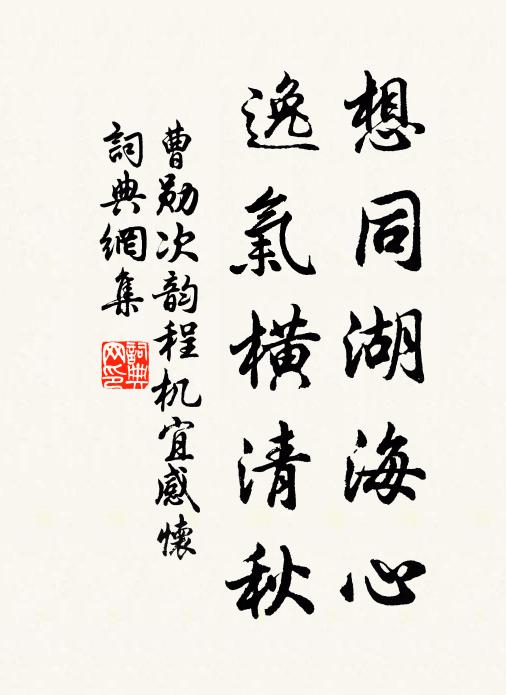 想同湖海心
逸氣橫清秋
曹勛次韵程机宜感懷
詞典網集
詞典网印